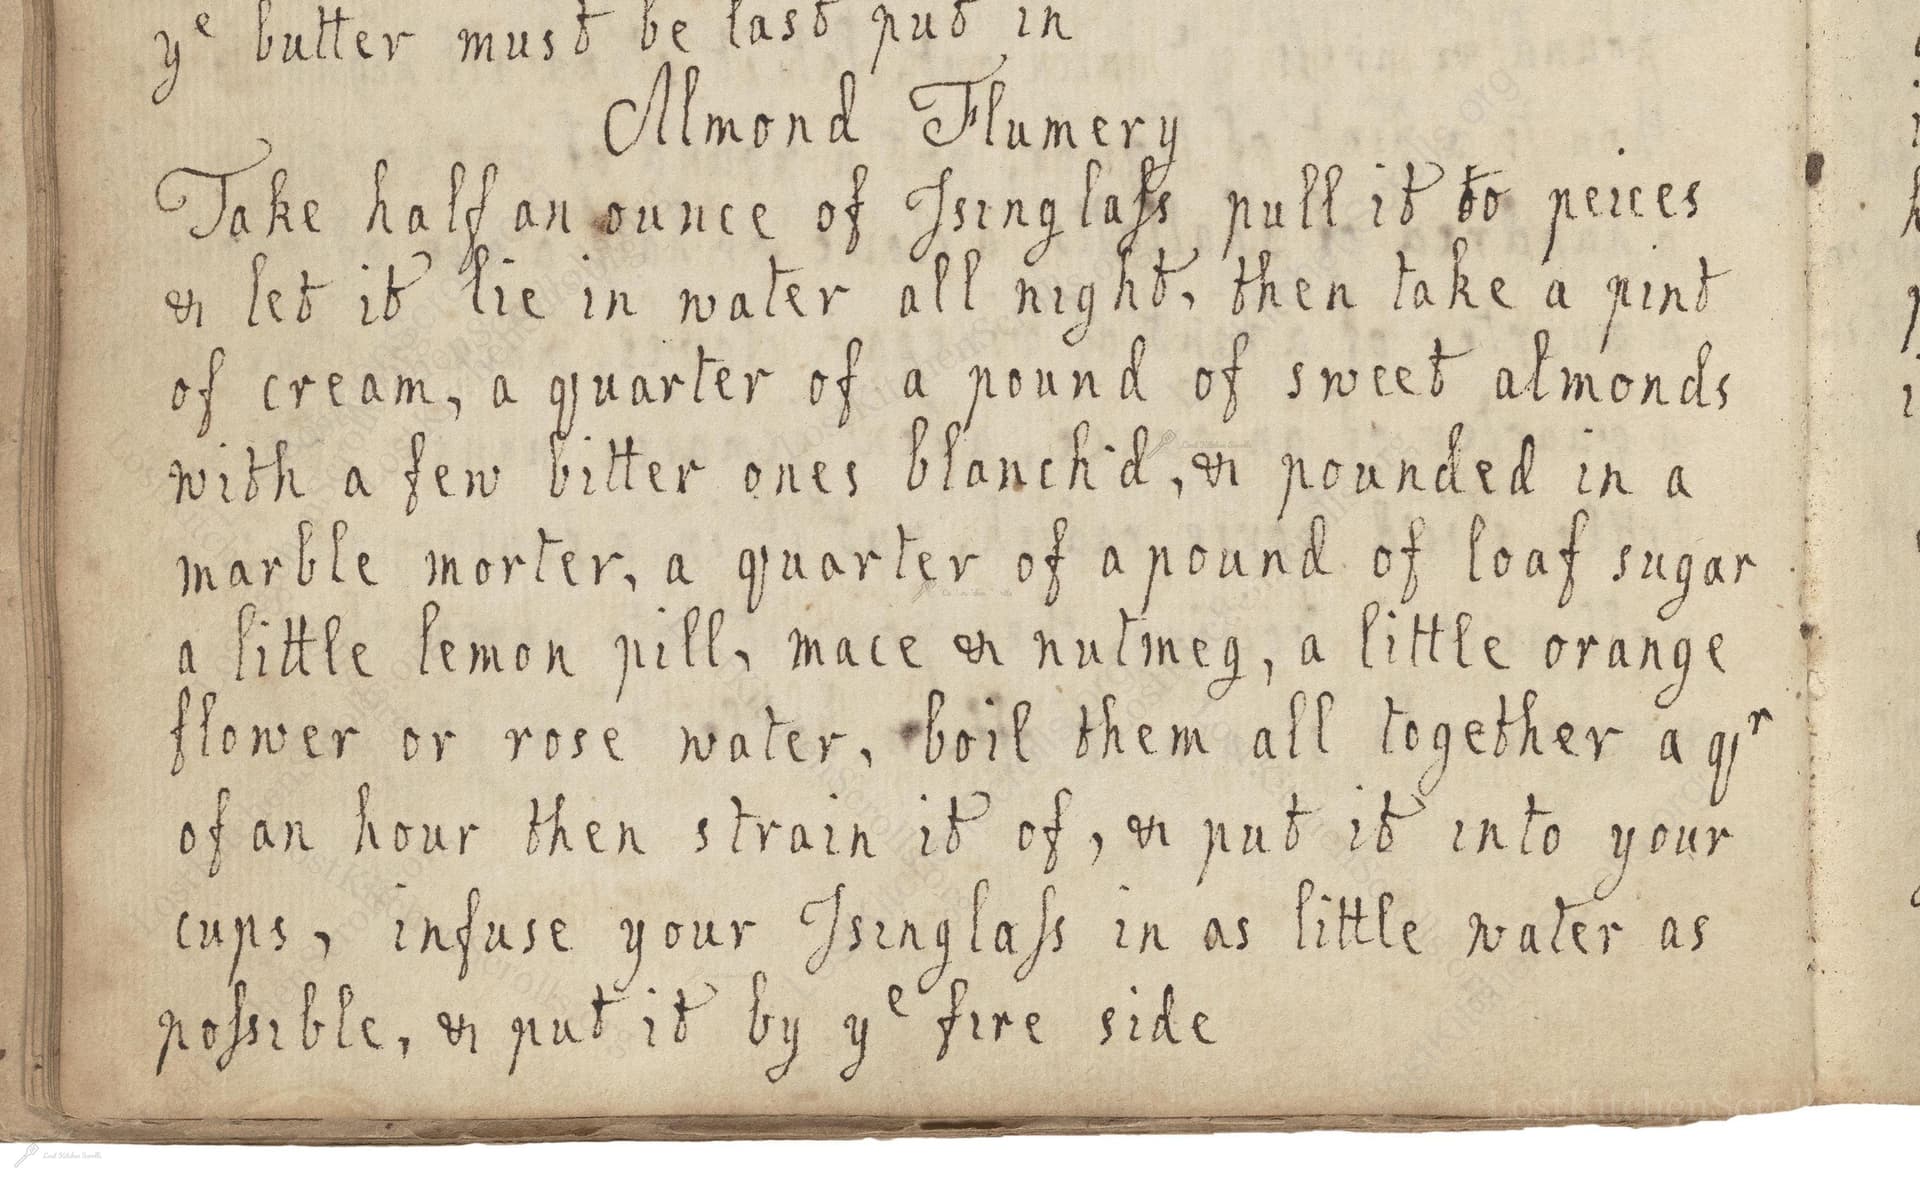 yᵉ butter must be last put in
Almond Flumery
Take half an ounce of Isinglaſs pull it to peices
& let it lie in water all night, then take a pint
of cream, a quarter of a pound of sweet almonds
with a few bitter ones blanch'd, & pounded in a
marble morter, a quarter of a pound of loaf sugar
a little lemon pill, mace & nutmeg, a little orange
flower or rose water, boil them all together a qʳ
of an hour then strain it of, & put it into your
cups, infuse your Isinglaſs in as little water as
poſsible, & put it by yᵉ fire side
LostKitchenScrolls
Lost Kitchen Scrolls